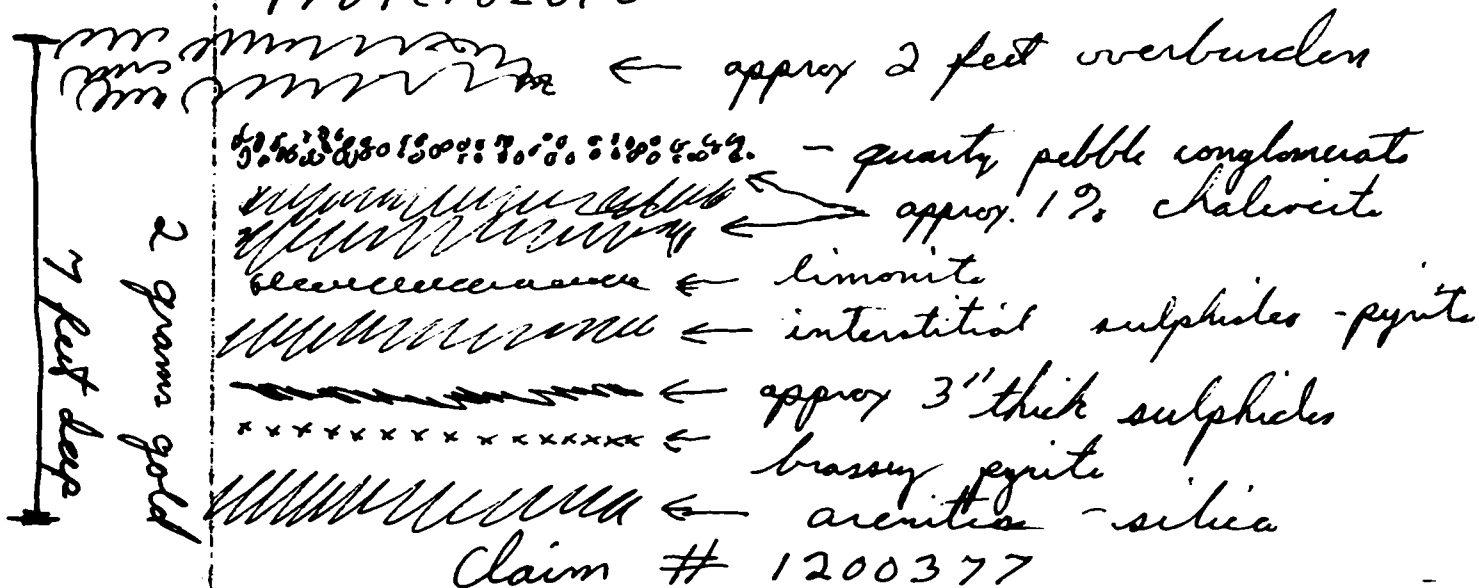 approx 2 feet overburden
- quartz pebble conglomerate
approx. 1% chalcocite
limonite
interstitial sulphides - pyrite
approx 3" thick sulphides
brassy pyrite
arenites - silica
Claim # 1200377
2 grams gold
7 feet deep